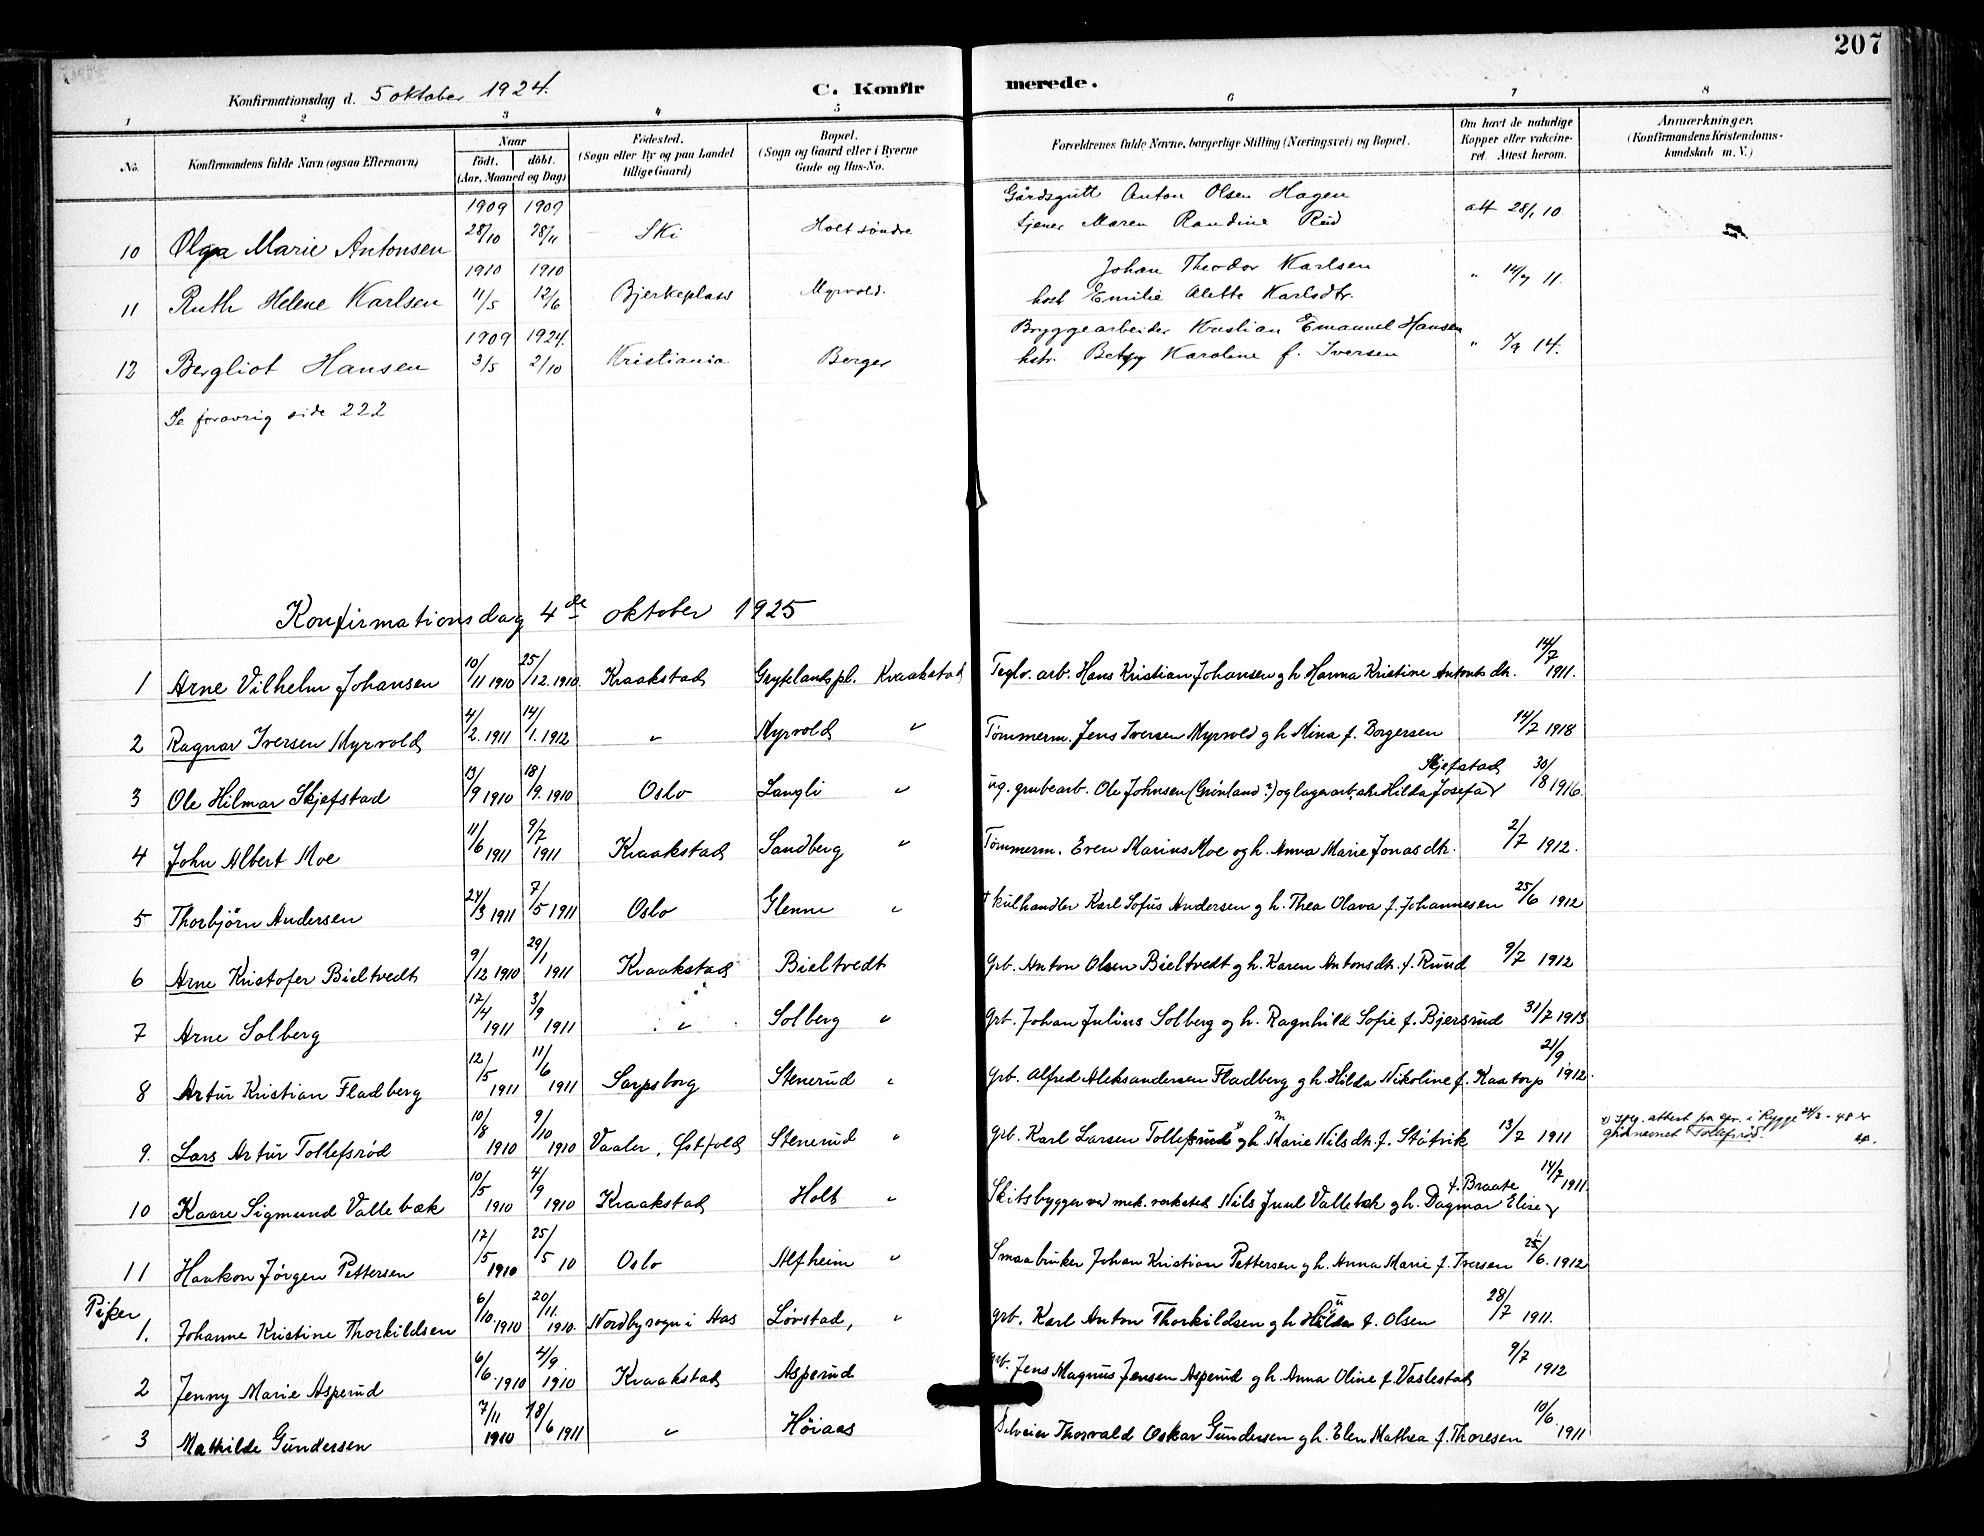 207
Konfirmationsdag d. 5 oktober 1924.
C. Konfirmerede.
1 2 3 4 5 6 7 8
No.
Konfirmandens fulde Navn (ogsaa Efternavn)
Naar
födt. döbt.
(Aar, Maaned og Dag)
Födested.
(Sogn eller By og paa Landet
tillige Gaard)
Bopæl.
(Sogn og Gaard eller i Byerne
Gade og Hus-No.
Forældrenes fulde Navne, borgerlige Stilling (Næringsvei) og Bopæl.
Om havt de naturlige
Kopper eller vakcine-
ret. Attest herom.
Anmærkninger.
(Konfirmandens Kristendoms-
kundskab m. V.)
10 Olga Marie Antonsen 1909 28/10 1909 28/11 Ski Holt søndre Gårdsgutt Anton Olsen Hagen
tjener Maren Randine Rud att 28/1 10
11 Ruth Helene Karlsen 1910 11/5 1910 12/6 Bjerkeplass Myrvold. Johan Theodor Karlsen
hust Emilie Alette Karlsdtr. " 14/7 11.
12 Bergliot Hansen 1909 3/5 1924. 2/10 Kristiania Berger Bryggearbeider Kristian Emanuel Hansen
hstr. Betsy Karoline f. Iversen " 1/9 14.
Se forøvrig side 222
Konfirmationsdag 4de oktober 1925
1 Arne Vilhelm Johansen 10/11 1910 25/12. 1910. Kraakstad Gryklandspl. Kraakstad Teglv. arb. Hans Kristian Johansen g h Hanna Kristine Antonsdtr. 14/7 1911.
2 Ragnar Iversen Myrvold 4/2. 1911 14/1. 1912 " Myrvold " Tømmerm. Jens Iversen Myrvold g h Mina f. Borgersen 14/7 1918
3 Ole Hilmar Skjefstad 13/9 1910 18/9. 1910 Oslo Langli " ug. grubearb. Ole Johnsen (Grönland?) og lagerarb.ske Hilda Josefa Skjefstad 30/8 1916
4 John Albert Moe 11/6 1911 9/7 1911 Kraakstad Sandberg " Tømmerm. Even Marius Moe og h. Anna Marie Jonasdtr. 2/7 1912.
5 Thorbjörn Andersen 24/3 1911 7/5 1911 Oslo Glenne " † kulhandler Karl Sofus Andersen g h. Thea Olava f. Johannesen 25/6 1912
6 Arne Kristofer Bieltvedt 9/12 1910 29/1 1911 Kraakstad Bieltvedt grb. Anton Olsen Bieltvedt g h. Karen Antonsdtr. f. Ruud 9/7 1912
7 Arne Solberg 17/4 1911 3/9 1911 " Solberg " grb. Johan Julius Solberg og h. Ragnhild Sofie f. Bjersrud 31/7 1913
8 Artur Kristian Fladberg 12/5 1911 11/6 1911 Sarpsborg Stenerud " grb. Alfred Aleksandersen Fladberg g h Hilda Nikoline f. Kaatorp 21/9 1912.
9. Lars Artur Tollefsrød 10/8 1910 9/10 1910 Vaaler, Østfold Stenerud " grb. Karl Larsen Tollefsrud x) g h. Marie Nilsdtr. f. Støtvik 13/7 1911 x) Iflg. attest fra spr. i Rygge 24/2-48 er
gårdsnavnet Tollefsrød.
10 Kaare Sigmund Vallebæk 10/5 1910 4/9 1910 Kraakstad Holt " Skibsbygger ved mek. verksted Nils Juul Vallebæk g h. Dagmar Elise f. Braate 14/7 1911.
11 Haakon Jörgen Pettersen 17/5 1910 25/5 10 Oslo Alfheim " Smaabruker Johan Kristian Pettersen g h. Anna Marie f. Iversen 25/6. 1912
Piker
1. Johanne Kristine Thorkildsen 6/10. 1910 20/11. 1910. Nordby sogn i Aas Løvstad, " grb. Karl Anton Thorkildsen g h Hulda f. Olsen 28/7 1911.
2 Jenny Marie Asperud 6/6. 1910 4/9. 1910 Kraakstad Asperud grb. Jens Magnus Jensen Asperud g h. Anna Oline f. Vaslestad 9/7 1912
3 Mathilde Gundersen 7/11 1910 18/6 1911 " Høiaas Selveier Thorvald Oskar Gundersen g h. Elen Mathea f. Thoresen 10/6. 1911